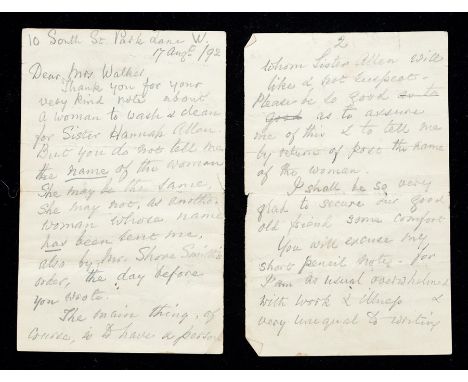 10 South St. Park Lane W.
17 Augt/92
Dear Mrs Walker
Thank you for your
very kind note about
a woman to wash & clean
for Sister Hannah Allen.
But you do not tell me
the name of the woman
She may be the same,
She may not, as another
woman whose name
has been sent me,
also by Mrs. Shore Smith's
order, the day before
you wrote.
The main thing, of
course, is to have a person
2
whom Sister Allen will
like & not suspect.
Please be so good
as to assure
me of this & to tell me
by return of post the name
of the woman.
I shall be so very
glad to secure our good
old friend some comfort
You will excuse my
short pencil note - for
I am as usual overwhelmed
with work & illness &
very unequal to writing